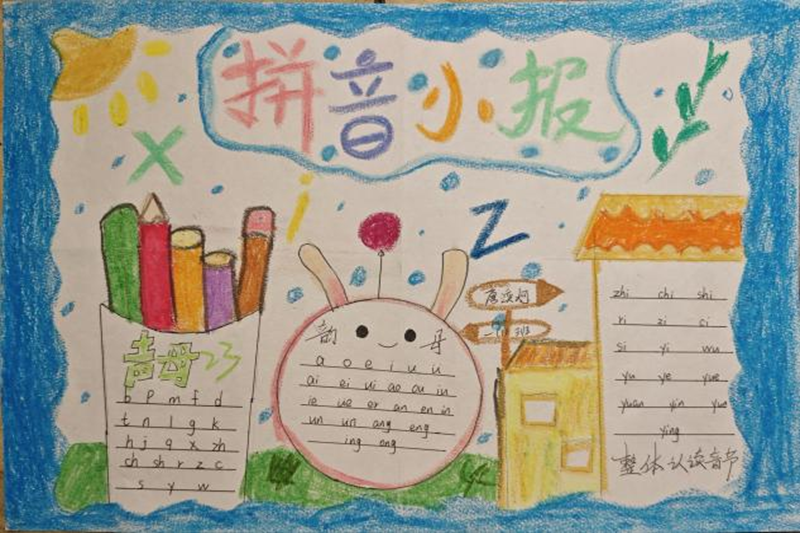 拼音小报
x
i
z
声母23
b p m f d
t n l g k
h j q x zh
ch sh r z c
s y w
韵母
a o e i u ü
ai ei ui ao ou iu
ie üe er an en in
un ün ang eng
ing ong
班
zhi chi shi
ri zi ci
si yi wu
yu ye yue
yuan yin yue
ying
整体认读音节